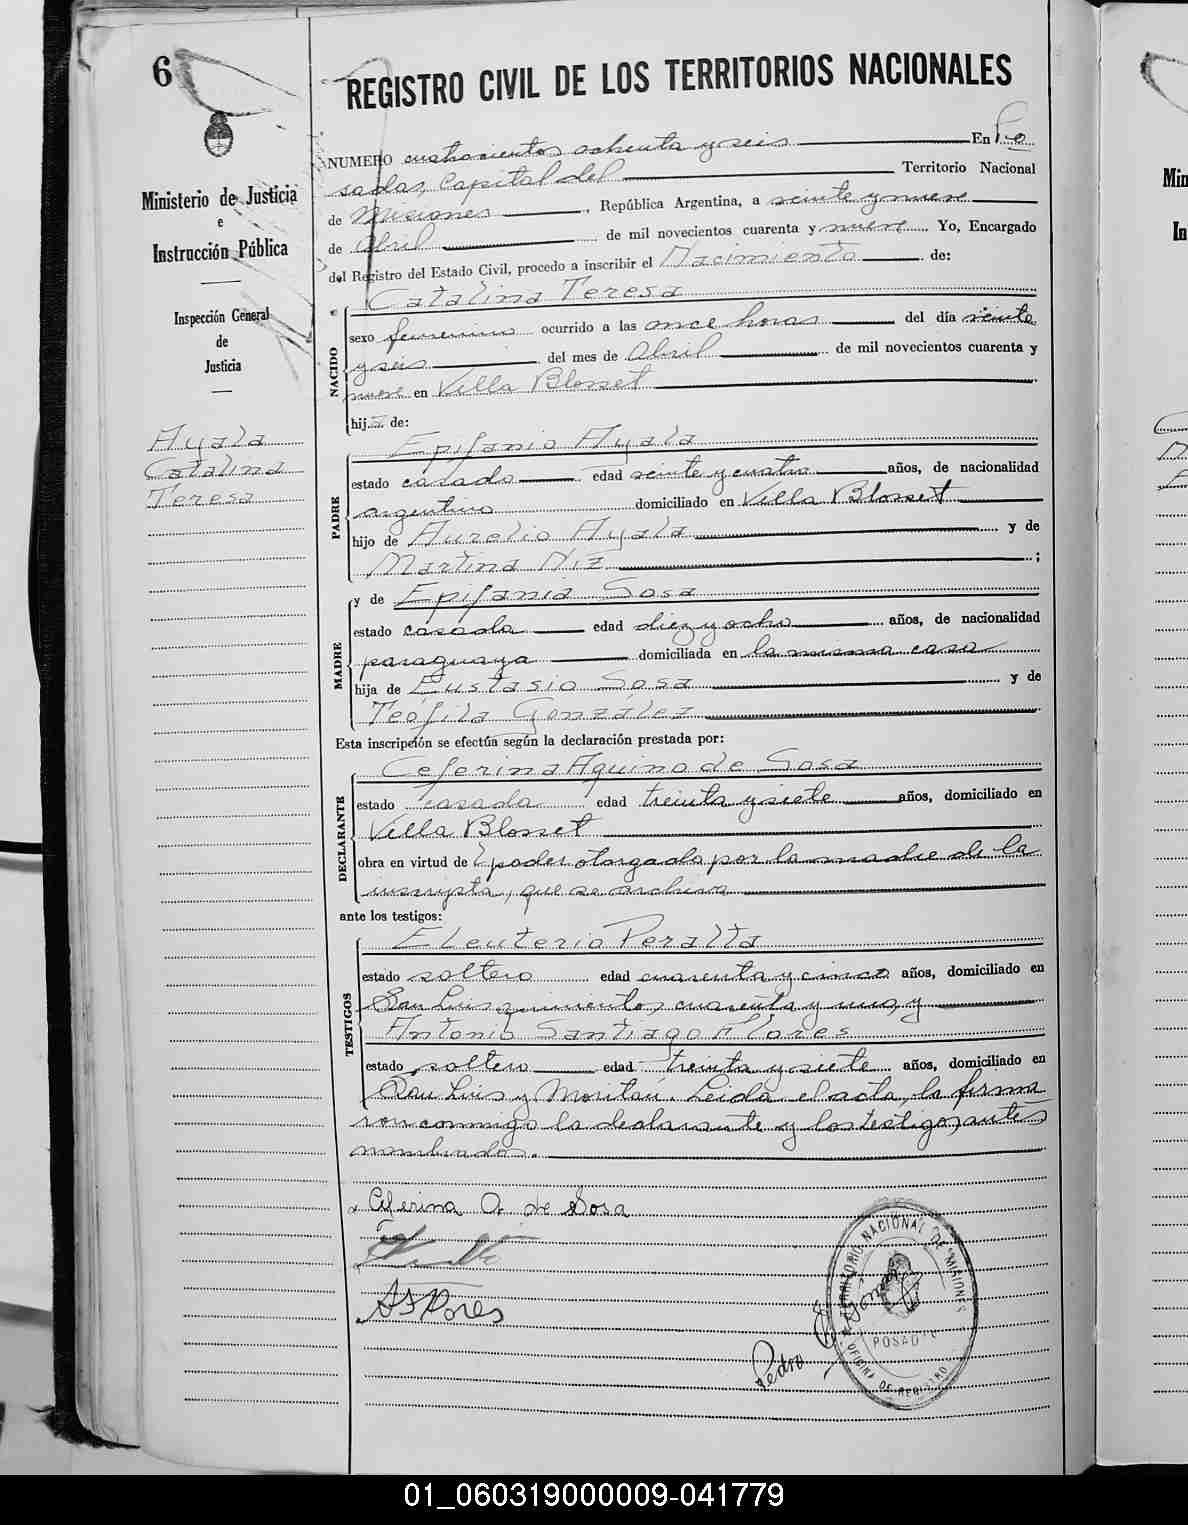 6
REGISTRO CIVIL DE LOS TERRITORIOS NACIONALES
Ministerio de Justicia
e
Instrucción Pública
Inspección General
de
Justicia
Ayala
Catalina
Teresa
NUMERO cuatrocientos ochenta y seis En Po
sadas, Capital del Territorio Nacional
de Misiones, República Argentina, a veinte y nueve
de Abril de mil novecientos cuarenta y nueve Yo, Encargado
del Registro del Estado Civil, procedo a inscribir el Nacimiento de:
Catalina Teresa
NACIDO
sexo femenino ocurrido a las once horas del día veinte
y seis del mes de Abril de mil novecientos cuarenta y
nueve en Villa Blosset
hija de:
PADRE
Epifanio Ayala
estado casado edad veinte y cuatro años, de nacionalidad
argentino domiciliado en Villa Blosset
hijo de Aurelio Ayala y de
Martina Niz ;
MADRE
y de Epifania Sosa
estado casada edad diez y ocho años, de nacionalidad
paraguaya domiciliada en la misma casa
hija de Eustasio Sosa y de
Teófila González
Esta inscripción se efectúa según la declaración prestada por:
DECLARANTE
Ceferina Aquino de Sosa
estado casada edad treinta y siete años, domiciliado en
Villa Blosset
obra en virtud de poder otorgado por la madre de la
inscripta, que se archiva
ante los testigos:
TESTIGOS
Eleuterio Peralta
estado soltero edad cuarenta y cinco años, domiciliado en
San Luis quinientos cuarenta y uno, y
Antonio Santiago Flores
estado soltero edad treinta y siete años, domiciliado en
San Luis y Moritán. Leida el acta, la firma
ron conmigo la declarante y los testigos antes
nombrados.
Ceferina A. de Sosa
A S Flores
Pedro
TERRITORIO NACIONAL DE MISIONES
POSADAS
OFICINA DE REGISTRO
Min
In
01_060319000009-041779